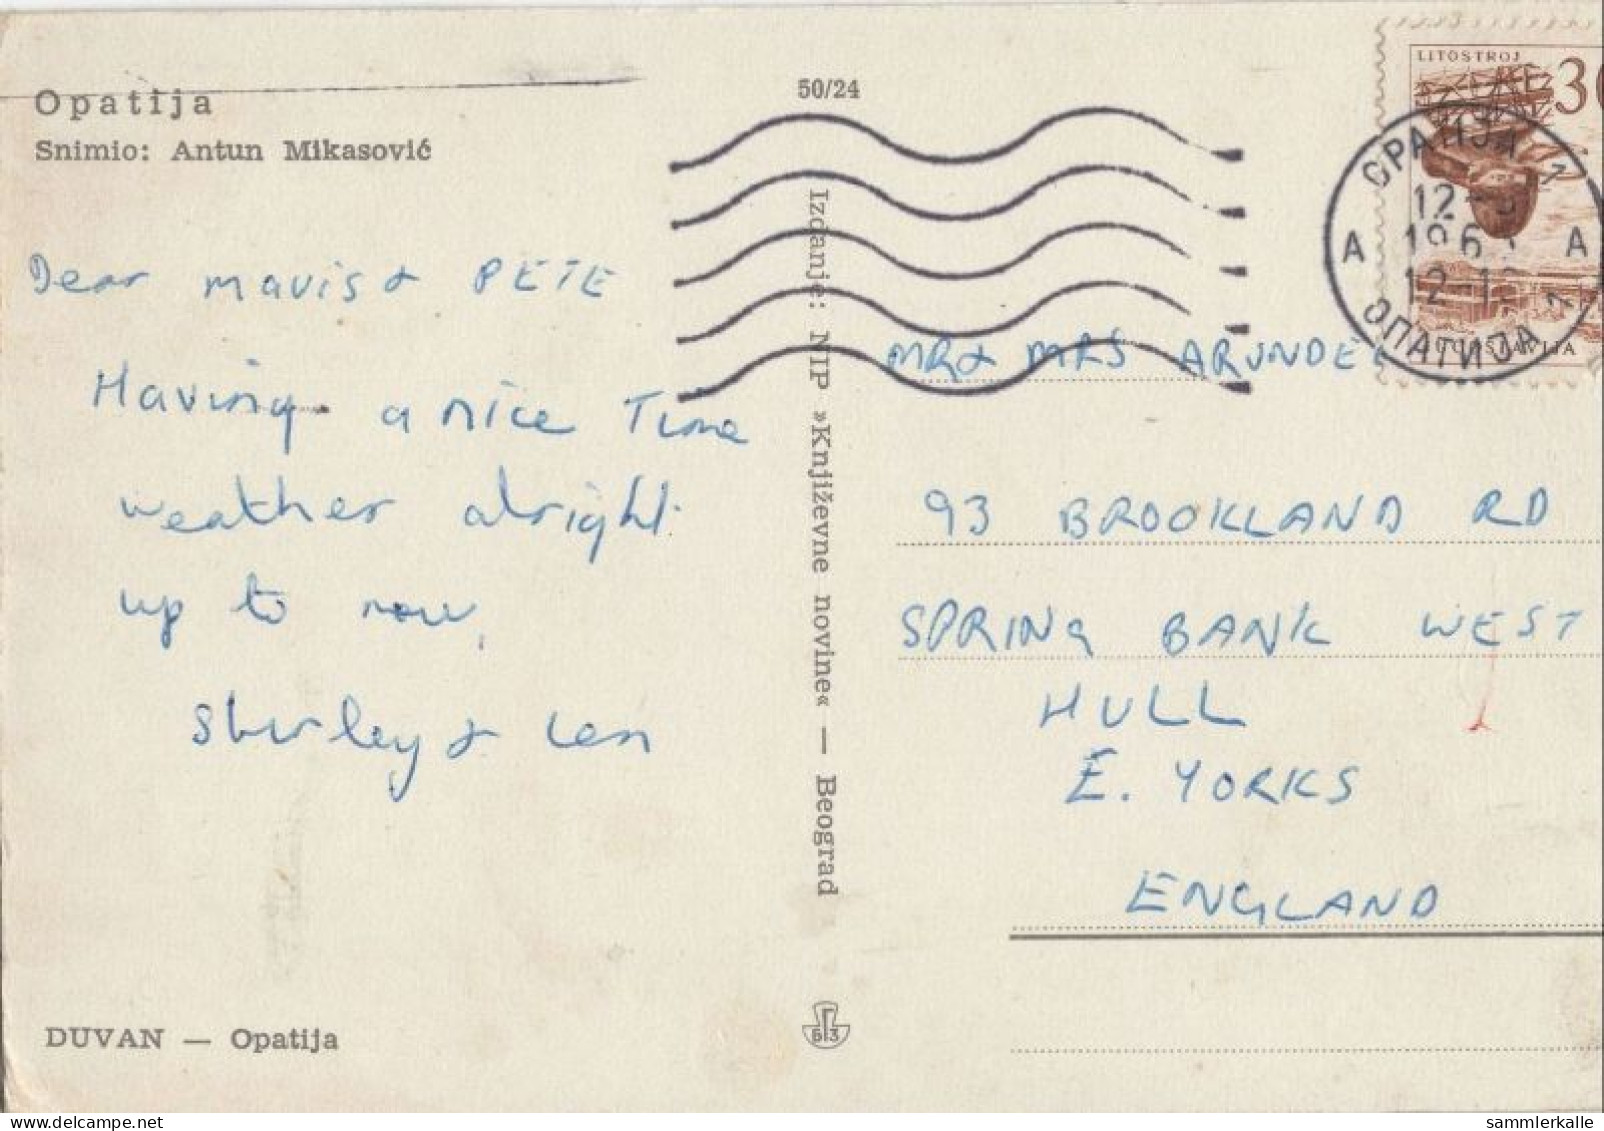 Opatija
Snimio: Antun Mikasović
50/24
LITOSTROJ
OPATIJA 1
12
A
A
ОПАТИЈА 1
Dear mavis & PETE
Having a nice Time
weather alright
up to now,
Shirley & Len
Izdanje: NIP »Književne novine« — Beograd
MR & MRS ARUNDEL
93 BROOKLAND RD
SPRING BANK WEST
HULL
E. YORKS
ENGLAND
DUVAN — Opatija
sammlerkalle